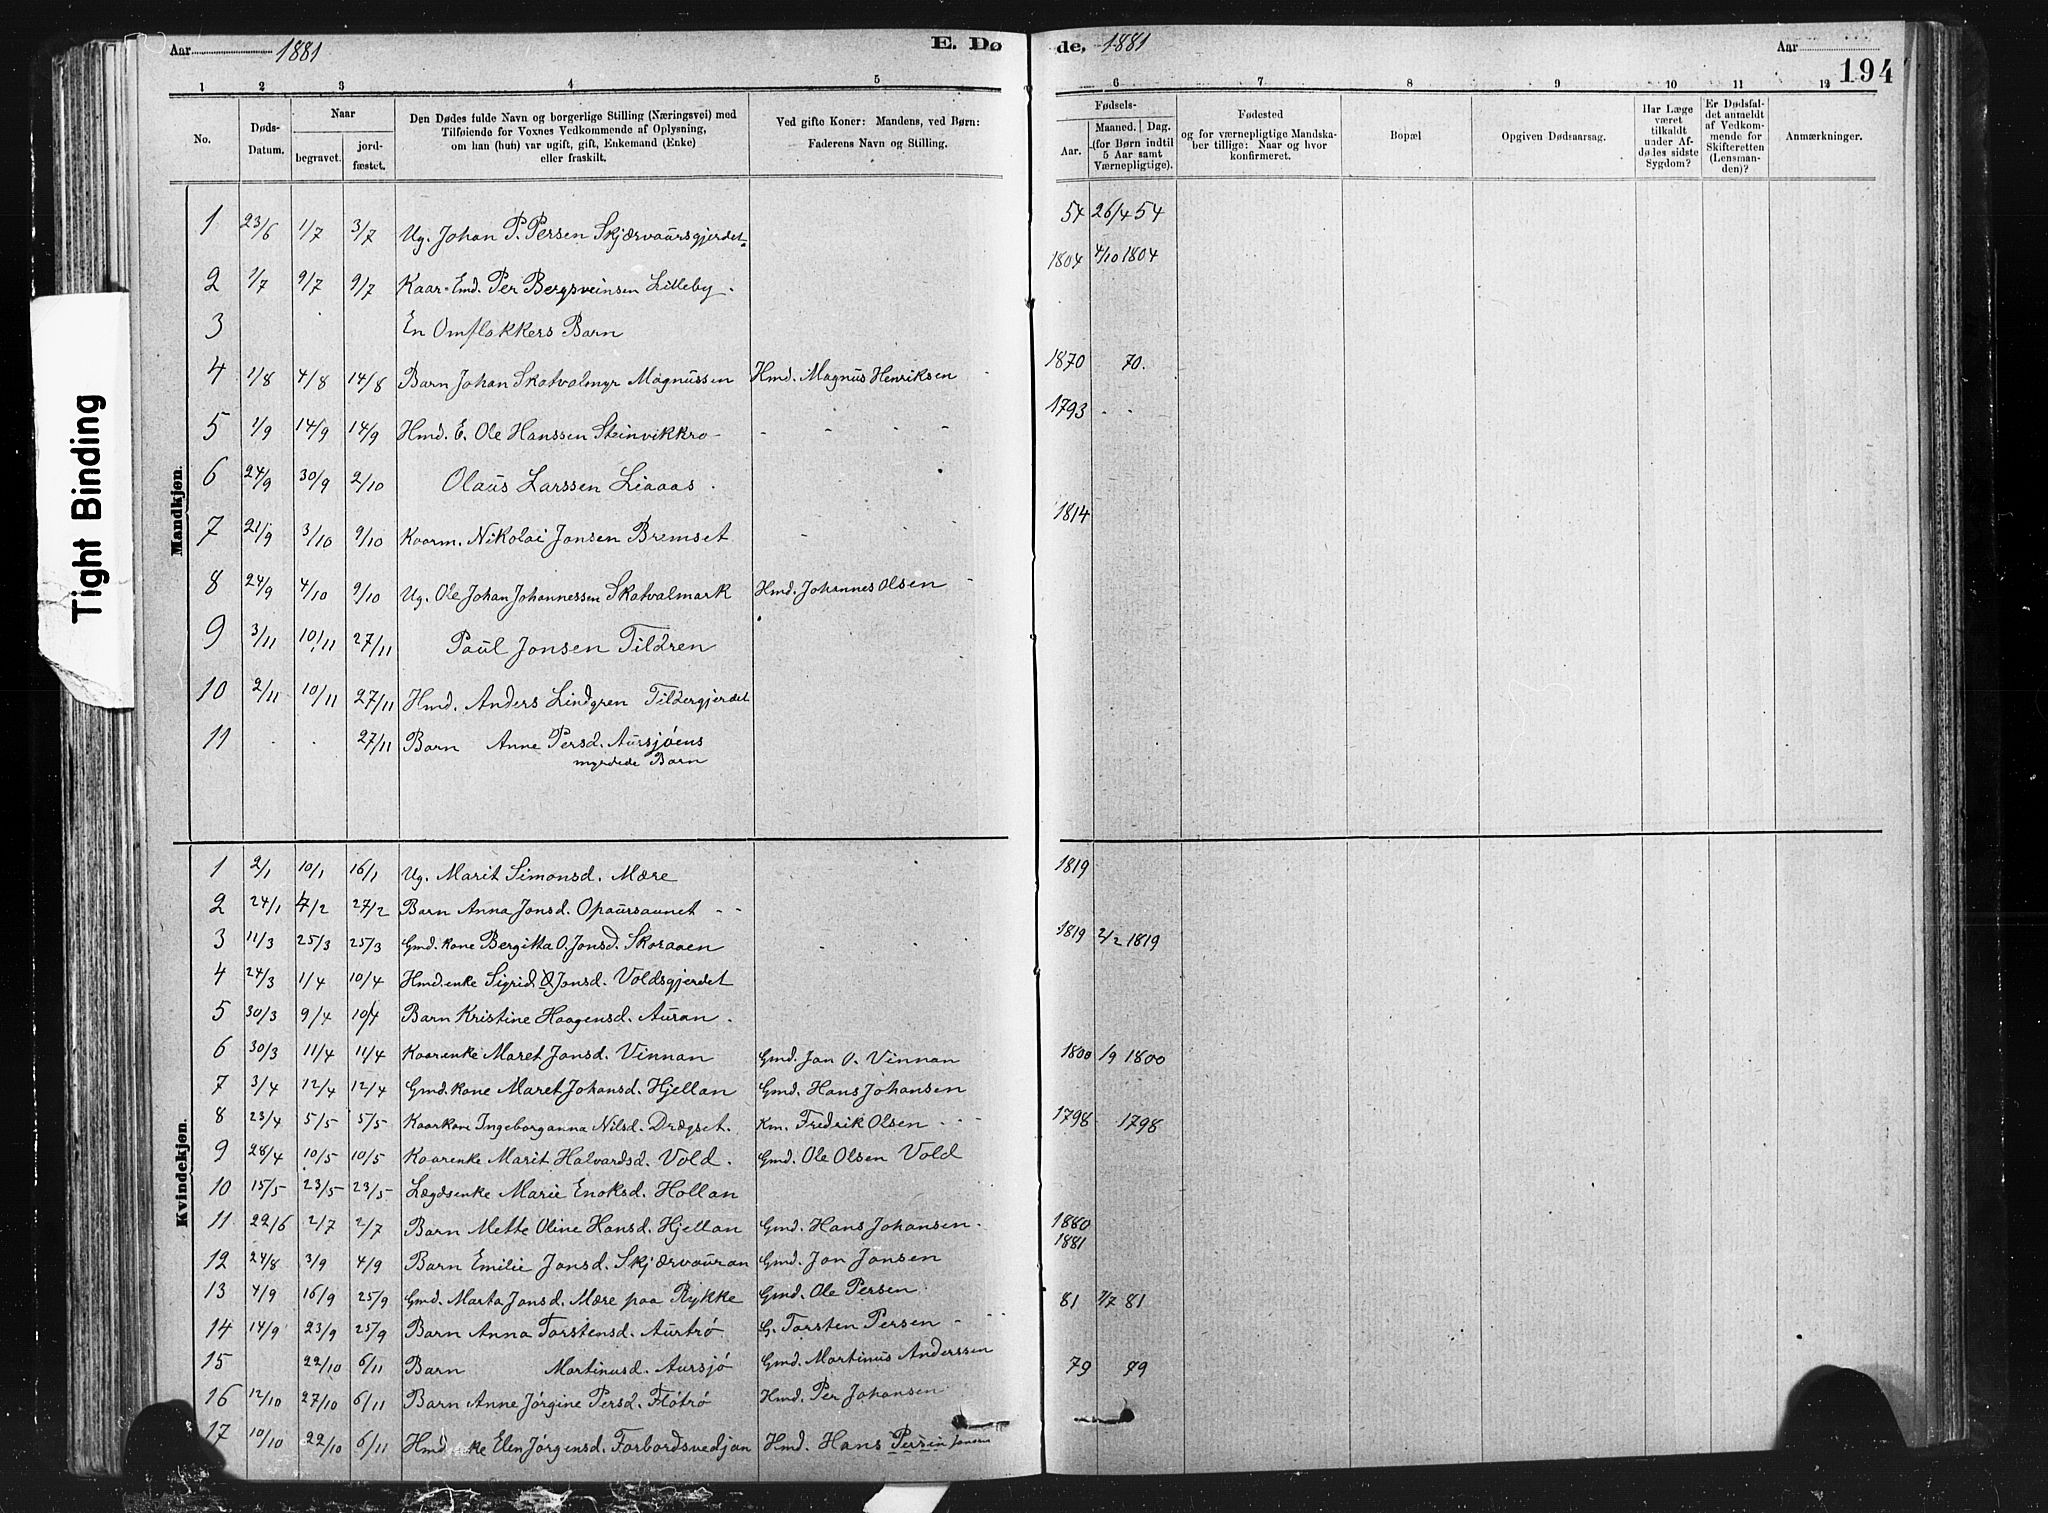 Aar 1881 E. Dø
de, 1881 Aar
194
1 2 3 4 5
6 7 8 9 10 11 12
No.
Døds-Datum.
Naar
begravet.
jord-fæstet.
Den Dødes fulde Navn og borgerlige Stilling (Næringsvei) med
Tilføiende for Voxnes Vedkommende af Oplysning,
om han (hun) var ugift, gift, Enkemand (Enke)
eller fraskilt.
Ved gifte Koner: Mandens, ved Børn:
Faderens Navn og Stilling.
Fødsels-
Aar.
Maaned. Dag.
(for Børn indtil
5 Aar samt
Værnepligtige).
Fødested
og for værnepligtige Mandska-
ber tillige: Naar og hvor
konfirmeret.
Bopæl
Opgiven Dødsaarsag.
Har Læge
været
tilkaldt
under Af-
dødes sidste
Sygdom?
Er Dødsfal-
det anmeldt
af Vedkom-
mende for
Skifteretten
(Lensman-
den)?
Anmærkninger.
Tight Binding
Mandkjøn.
1 23/6 1/7 3/7 Ug. Johan P. Persen Skjærvaursgjerdet. 54 26/4 54
2 1/7 9/7 9/7 Kaar-Emd. Per Bergsveinsen Lilleby. 1804 4/10 1804
3 En Omflakkers Barn
4 1/8 4/8 14/8 Barn Johan Skatvalmyr Magnussen Hmd. Magnus Henriksen 1870 70.
5 1/9 14/9 14/9 Hmd. E. Ole Hanssen Steinvikkro 1793
6 24/9 30/9 2/10 Olaus Larssen Liaaas.
7 21/9 3/10 9/10 Kaarm. Nikolai Jonsen Bremset 1814
8 24/9 4/10 9/10 Ug. Ole Johan Johannessen Skatvalmark Hmd. Johannes Olsen
9 3/11 10/11 27/11 Paul Jonsen Tildren
10 2/11 10/11 27/11 Hmd. Anders Lindgren Tildergjerdet
11 27/11 Barn Anne Persd. Aursjøens
myrdede Barn
Kvindekjøn.
1 2/1 10/1 16/1 Ug. Marit Simonsd. Mære 1819
2 24/1 7/2 27/2 Barn Anna Jonsd. Opaursaunet
3 11/3 25/3 25/3 Gmd. kone Bergitta O. Jonsd. Skoraaen 1819 2/2 1819
4 24/3 1/4 10/4 Hmd. enke Sigrid Jonsd. Voldsgjerdet
5 30/3 9/4 10/4 Barn Kristine Haagensd. Auran.
6 30/3 11/4 11/4 Kaarenke Maret Jonsd. Vinnan Gmd. Jon O. Vinnan 1800 1/9 1800
7 3/4 12/4 12/4 Gmd. kone Maret Johansd. Hjellan Gmd. Hans Johansen
8 23/4 5/5 5/5 Kaarkone Ingeborganna Nilsd. Drægset. Km. Fredrik Olsen 1798 1798
9 28/4 10/5 10/5 Kaarenke Marit Halvardsd. Vold. Gmd. Ole Olsen Vold
10 15/5 23/5 23/5 Lægdsenke Marie Enoksd. Hollan
11 22/6 2/7 2/7 Barn Mette Oline Hansd. Hjellan Gmd. Hans Johansen. 1880
12 24/8 3/9 4/9 Barn Emilie Jonsd. Skjærvauran Gmd. Jon Jonsen 1881
13 4/9 16/9 25/9 Gmd. Marta Jonsd. Mære paa Rykke Gmd. Ole Persen
14 14/9 23/9 25/9 Barn Anna Torstensd. Aurtrø G. Torsten Persen 81 7/7 81
15 22/10 6/11 Barn Martinusd. Aursjø Gmd. Martinus Anderssen
16 12/10 27/10 6/11 Barn Anne Jørgine Persd. Fløtrø Hmd. Per Johansen 79 79
17 10/10 22/10 6/11 Hmd Elen Jørgensd. Forbordsvedjan Hmd. Hans Persen Jonsen